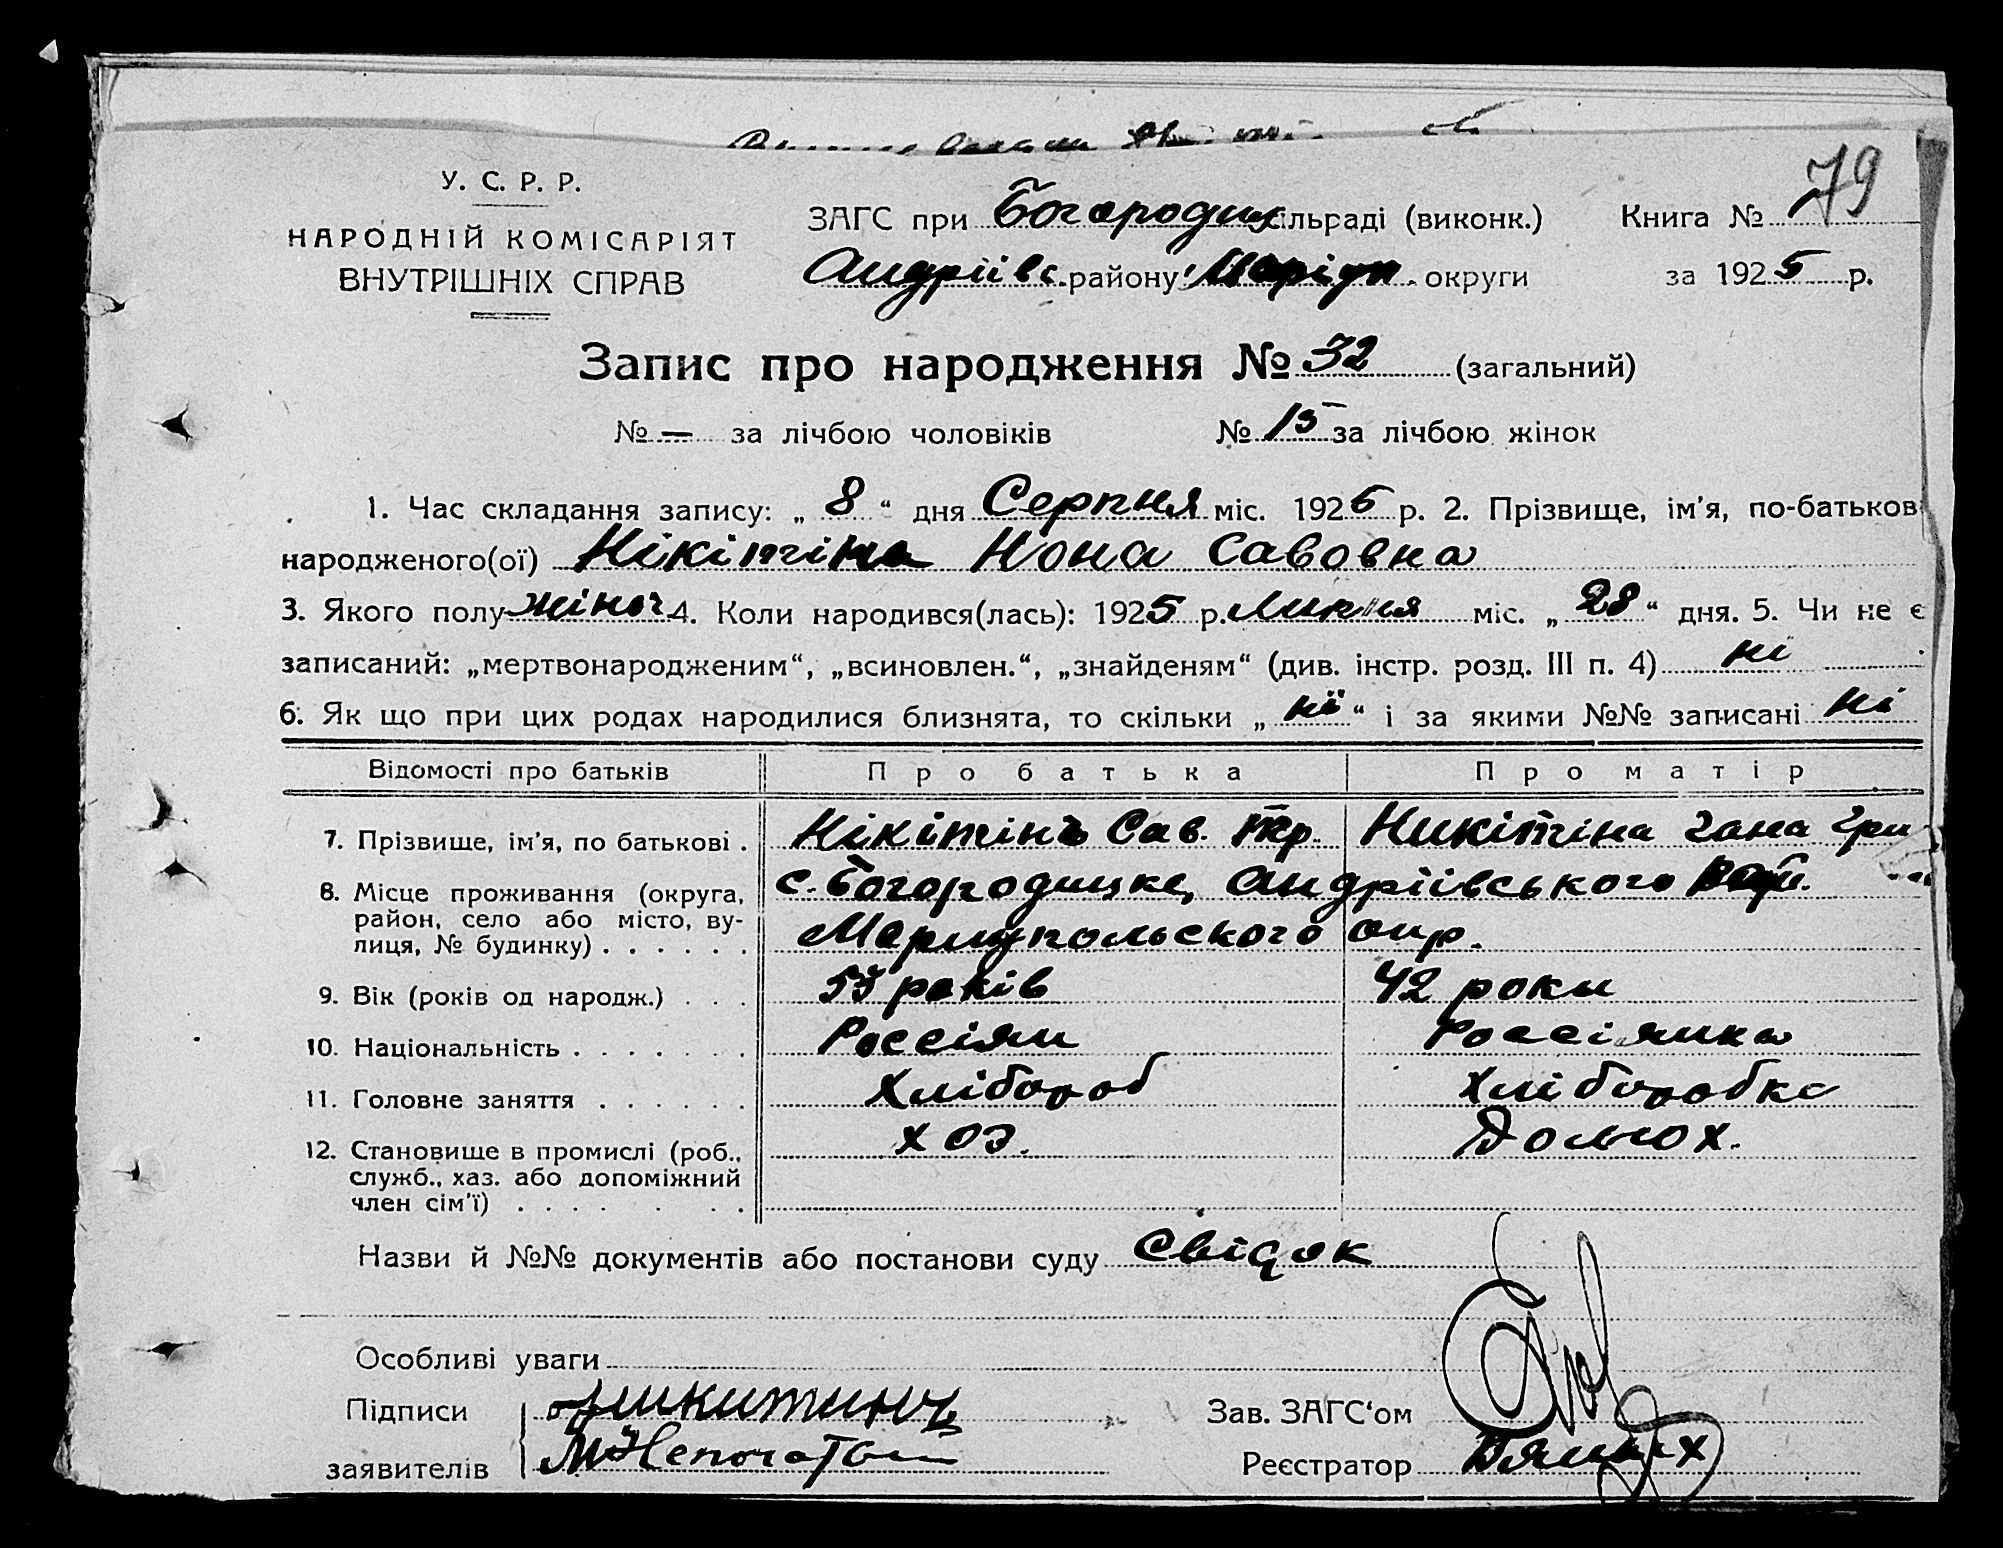 79
У. С. Р. Р.
НАРОДНІЙ КОМІСАРІЯТ
ВНУТРІШНІХ СПРАВ
ЗАГС при Богородицьк сільраді (виконк.) Книга №
Андріївс. району Маріуп. округи за 1925 р.
Запис про народження № 32 (загальний)
№ — за лічбою чоловіків № 15 за лічбою жінок
1. Час складання запису: „ 8 “ дня Серпня міс. 1925 р. 2. Прізвище, ім'я, по-батькові
народженого(ої) Нікітіна Нона Савовна
3. Якого полу жіноч 4. Коли народився(лась): 1925 р. Липня міс. „ 28 “ дня. 5. Чи не є
записаний: „мертвонародженим“, „всиновлен.“, „знайденям“ (див. інстр. розд. III п. 4) ні
6. Як що при цих родах народилися близнята, то скільки „ ні “ і за якими №№ записані ні
Відомості про батьків Про батька Про матір
7. Прізвище, ім'я, по батькові . Нікітінъ Сав. Никітіна Гана Гри
8. Місце проживання (округа, с. Богородицке, Андріівського Рай.
район, село або місто, ву-
лиця, № будинку) . . . . . . Мариупольского окр.
9. Вік (років од народж.) . . . 55 років 42 роки
10. Національність . . . . . . . Россіян Россіянка
11. Головне заняття . . . . . . Хлібороб Хліборобка
12. Становище в промислі (роб., хоз. Домох.
служб., хаз. або допоміжний
член сім'ї) . . . . . . .
Назви й №№ документів або постанови суду Свідок
Особливі уваги
Підписи Никитинъ Зав. ЗАГС‘ом
заявителів Реєстратор